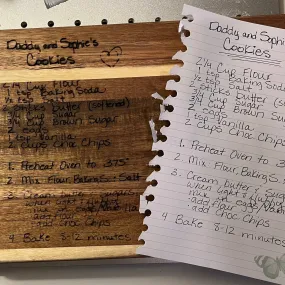 Daddy and Sophie's
Cookies
2 1/4 Cup Flour
1 tsp Baking Soda
1/2 tsp Salt
2 Sticks Butter (softened)
3/4 Cup Sugar
3/4 Cup Brown Sugar
2 eggs
1 tsp Vanilla
2 Cups Choc Chips
1. Preheat Oven to 375°
2. Mix Flour, Baking S., Salt
3. Cream butter & Sugar
when light & fluffy
add Choc Chips
4 Bake 8-12 minutes
Daddy and Sophie's
Cookies
2 1/4 Cup Flour
1 tsp Baking Soda
1/2 tsp Salt
2 Sticks Butter (softened)
3/4 Cup Sugar
3/4 Cup Brown Sugar
2 eggs
1 tsp Vanilla
2 Cups Choc Chips
1. Preheat Oven to 375
2. Mix Flour, Baking S.
3. Cream butter & Sugar
when light & fluffy
add Choc Chips
4 Bake 8-12 minutes